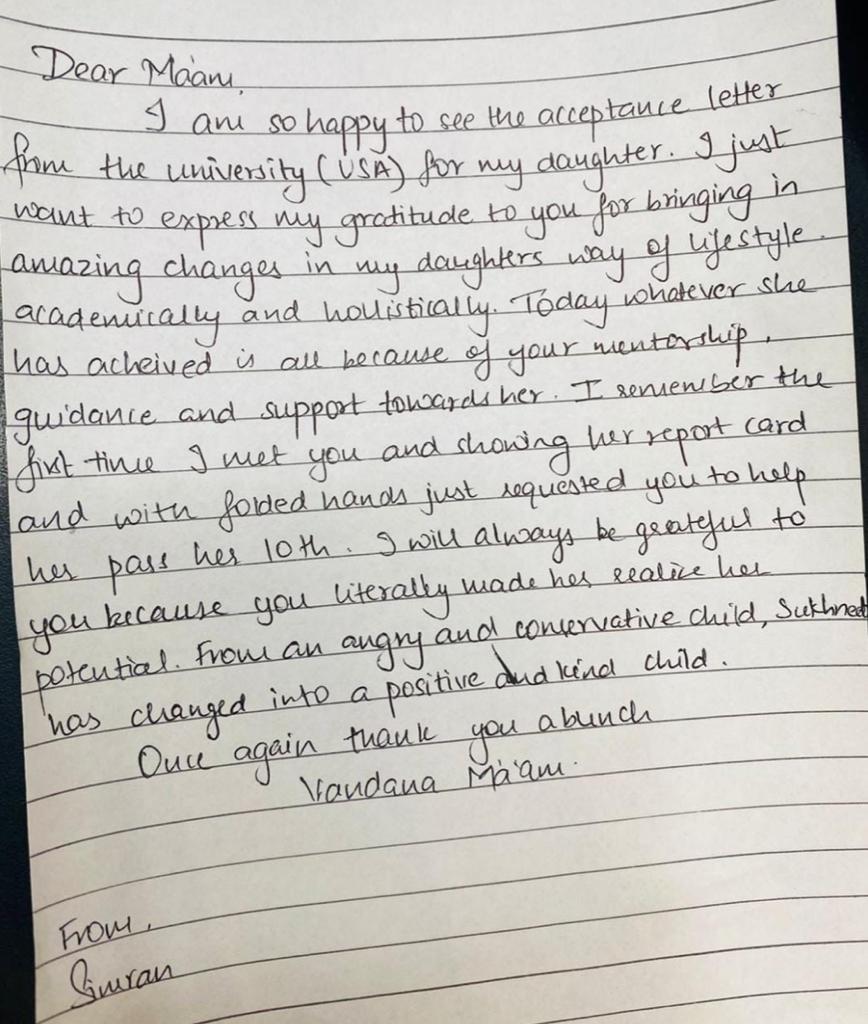 Dear Ma'am,
I am so happy to see the acceptance letter
from the university (USA) for my daughter. I just
want to express my gratitude to you for bringing in
amazing changes in my daughters way of lifestyle
academically and hollistically. Today whatever she
has acheived is all because of your mentorship,
guidance and support towards her. I remember the
first time I met you and showing her report card
and with folded hands just requested you to help
her pass her 10th. I will always be grateful to
you because you literally made her realize her
potential. From an angry and conservative child, Sukhneet
has changed into a positive and kind child.
Once again thank you a bunch
Vandana Ma'am.
From,
Simran